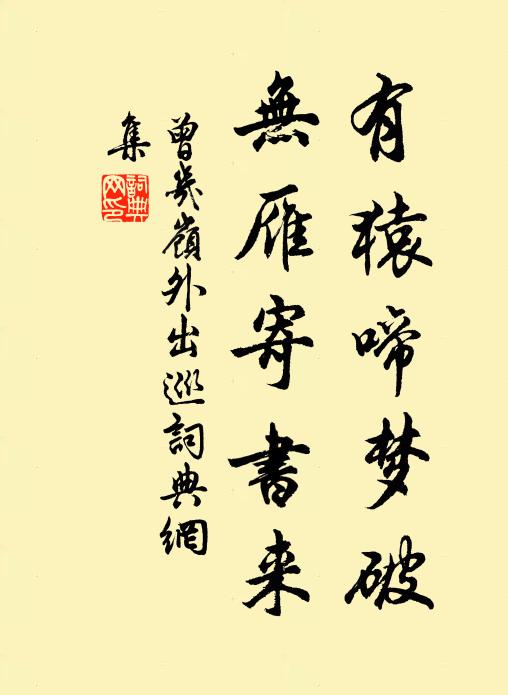 有猿啼梦破
無雁寄書来
曾幾嶺外出巡詞典網
集
詞典網印